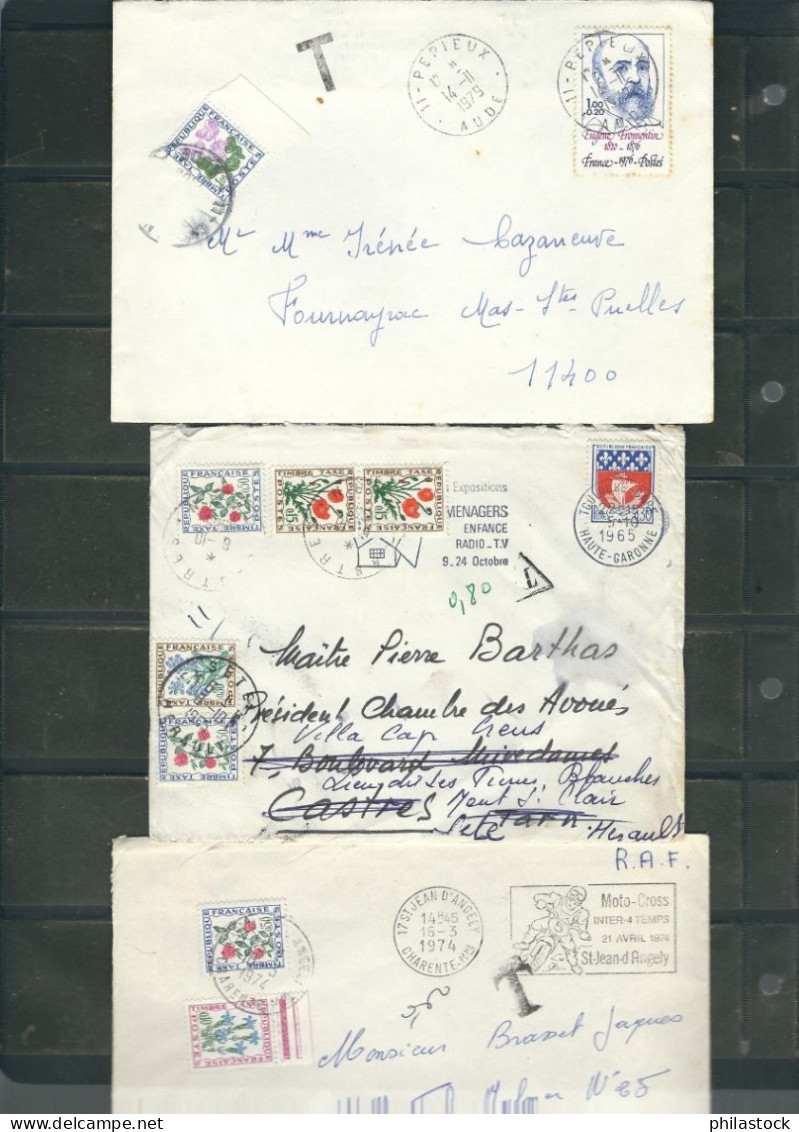 T
11 - PEPIEUX
14-11
1979
AUDE
11 - PEPIEUX
1.00
+0.20
Eugène Fromentin
1820 - 1876
France - 1976 - Postes
RÉPUBLIQUE FRANÇAISE
TIMBRE TAXE
POSTES
Mr Mme Irénée Cazaneuve
Fournayrac Mas-Stes Puelles
11400
REPUBLIQUE FRANÇAISE
TIMBRE TAXE
POSTES
0,50
TIMBRE TAXE
REPUBLIQUE FRANÇAISE
POSTES
0,15
TIMBRE TAXE
REPUBLIQUE FRANÇAISE
POSTES
0,15
Expositions
MENAGERS
ENFANCE
RADIO - T.V
9.24 Octobre
REPUBLIQUE FRANÇAISE
0,30
5-10
1965
HAUTE-GARONNE
T
0,80
Maître Pierre Barthas
Président Chambre des Avoués
Villa Cap
7, Boulevard Miredames
Lieu dit Les Blanches
Castres Mont St Clair
Tarn
Sète Hérault
REPUBLIQUE FRANÇAISE
POSTES
REPUBLIQUE FRANÇAISE
TIMBRE TAXE
POSTES
R.A.F.
17 ST JEAN D'ANGELY
14H45
16-3
1974
CHARENTE-MME
Moto-Cross
INTER-4 TEMPS
21 AVRIL 1974
St-Jean-d'Angely
REPUBLIQUE FRANÇAISE
TIMBRE TAXE
POSTES
0,50
1974
T
TIMBRE TAXE
0,10
REPUBLIQUE FRANÇAISE
POSTES
Monsieur Brasset Jacques
philastock
delcampe.net